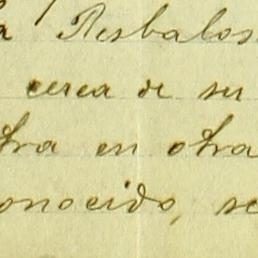 a Resbalos
cerca de su
tra en otra
onocido, se